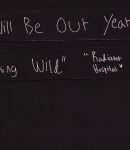 ill Be Our Year
ing Wild" "Radiator
Hospital"